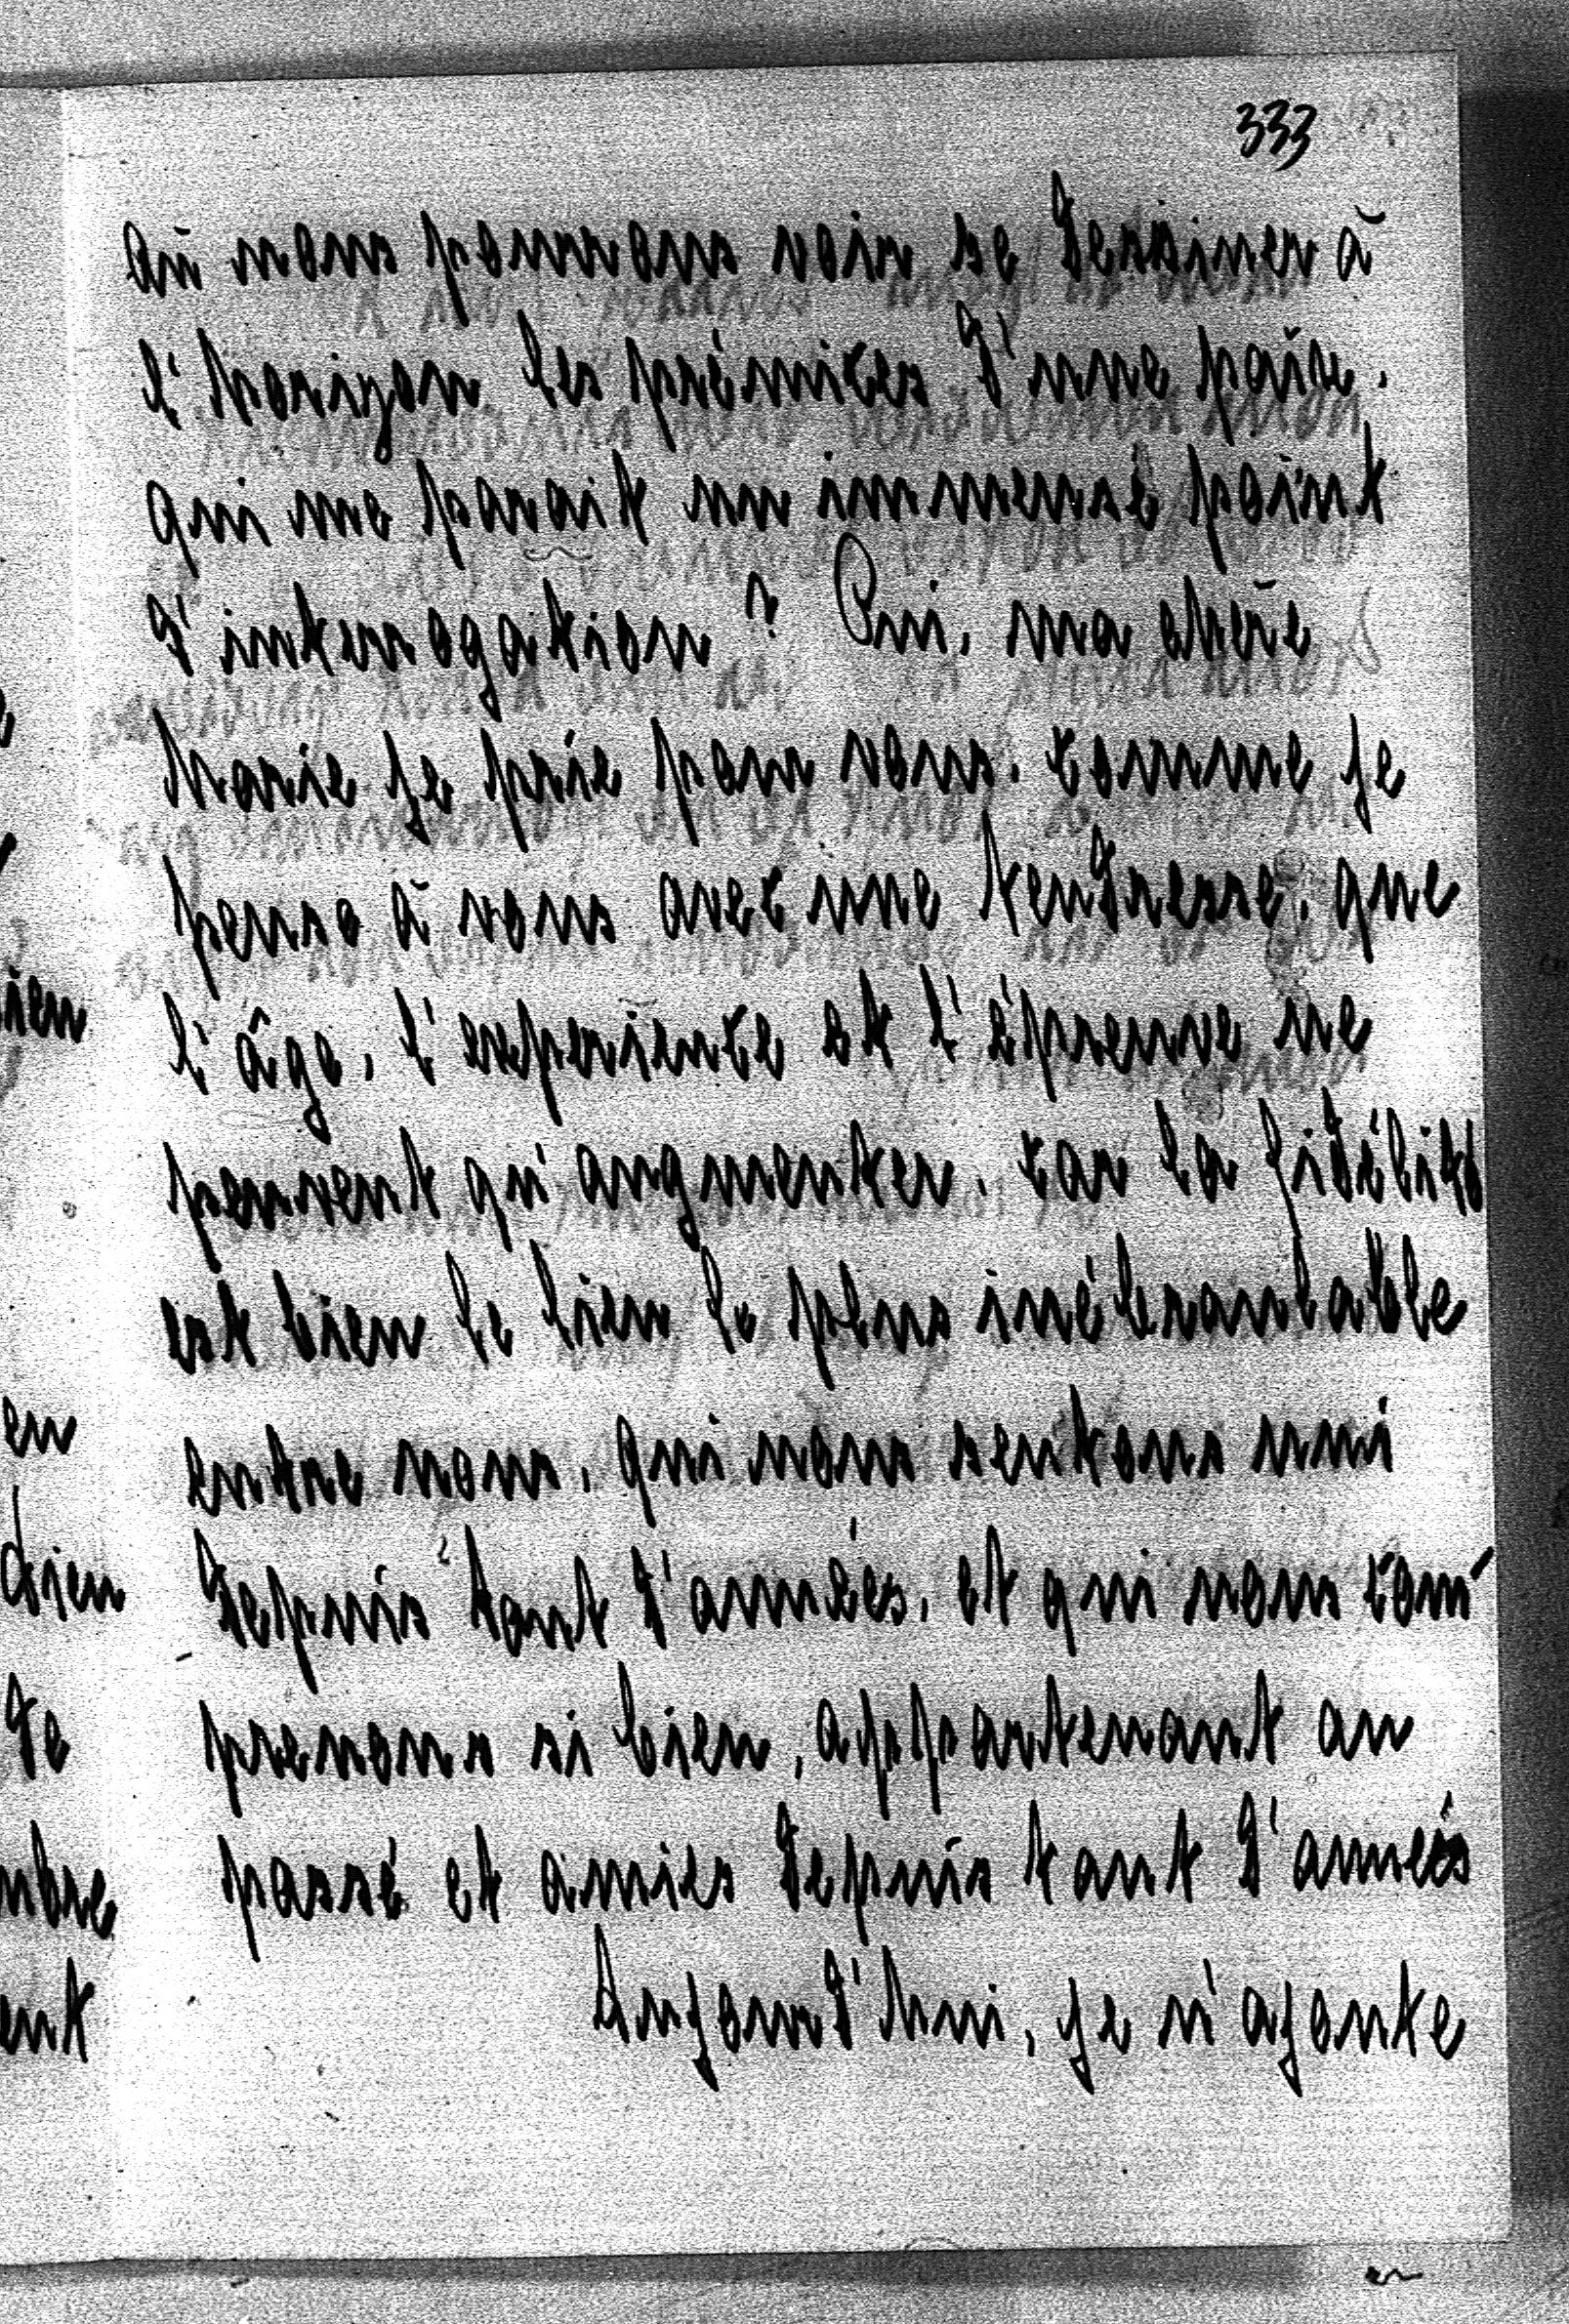 333
où nous pouvons voir se dessiner à
l'horizon les prémices d'une paix,
qui me parait un immense point
d'interrogation? Oui, ma chère
Marie je prie pour vous, comme je
pense à vous avec une tendresse, que
l'âge, l'experience et l'épreuve ne
peuvent qu'augmenter, car la fidélité
est bien le lien le plus inébranlable
entre nous, qui nous sentons uni
depuis tant d'années, et qui nous com
prenons si bien, appartenant au
passé et amies depuis tant d'années
Aujourd'hui, je n'ajoute
ien
en
dien
de
mbre
ent